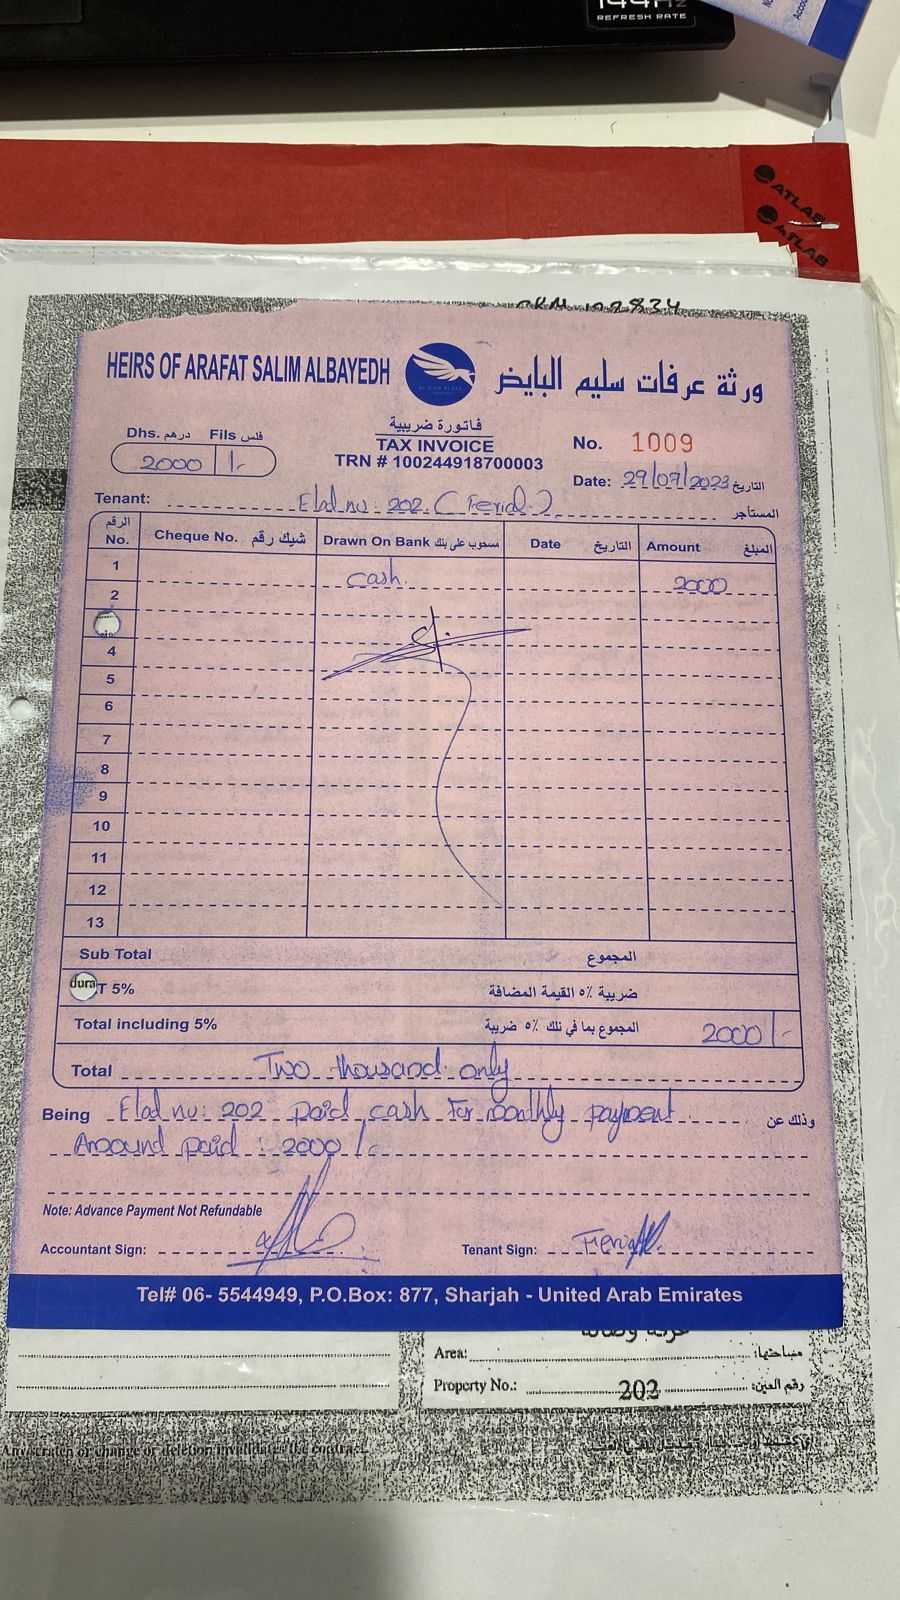 144Hz
REFRESH RATE
ATLAS
ATLAS
HEIRS OF ARAFAT SALIM ALBAYEDH
ورثة عرفات سليم البايض
فاتورة ضريبية
TAX INVOICE
TRN # 100244918700003
Dhs. درهم Fils فلس
2000 /-
No. 1009
Date: 29/07/2023 التاريخ
Tenant: Flad nu: 202 (Ferial) المستأجر
الرقم No. Cheque No. شيك رقم Drawn On Bank مسحوب على بنك Date التاريخ Amount المبلغ
1 cash 2000
2
4
5
6
7
8
9
10
11
12
13
Sub Total المجموع
dura
T 5% ضريبة ٥٪ القيمة المضافة
Total including 5% المجموع بما في ذلك ٥٪ ضريبة 2000/-
Total Two thousand only
Being Flad nu: 202 paid cash for monthly payment وذلك عن
Amound paid : 2000/-
Note: Advance Payment Not Refundable
Accountant Sign:
Tenant Sign: Ferial
Tel# 06- 5544949, P.O.Box: 877, Sharjah - United Arab Emirates
Area: مساحتها:
Property No.: 202 رقم العين:
Any scratch or change or deletion invalidates the contract